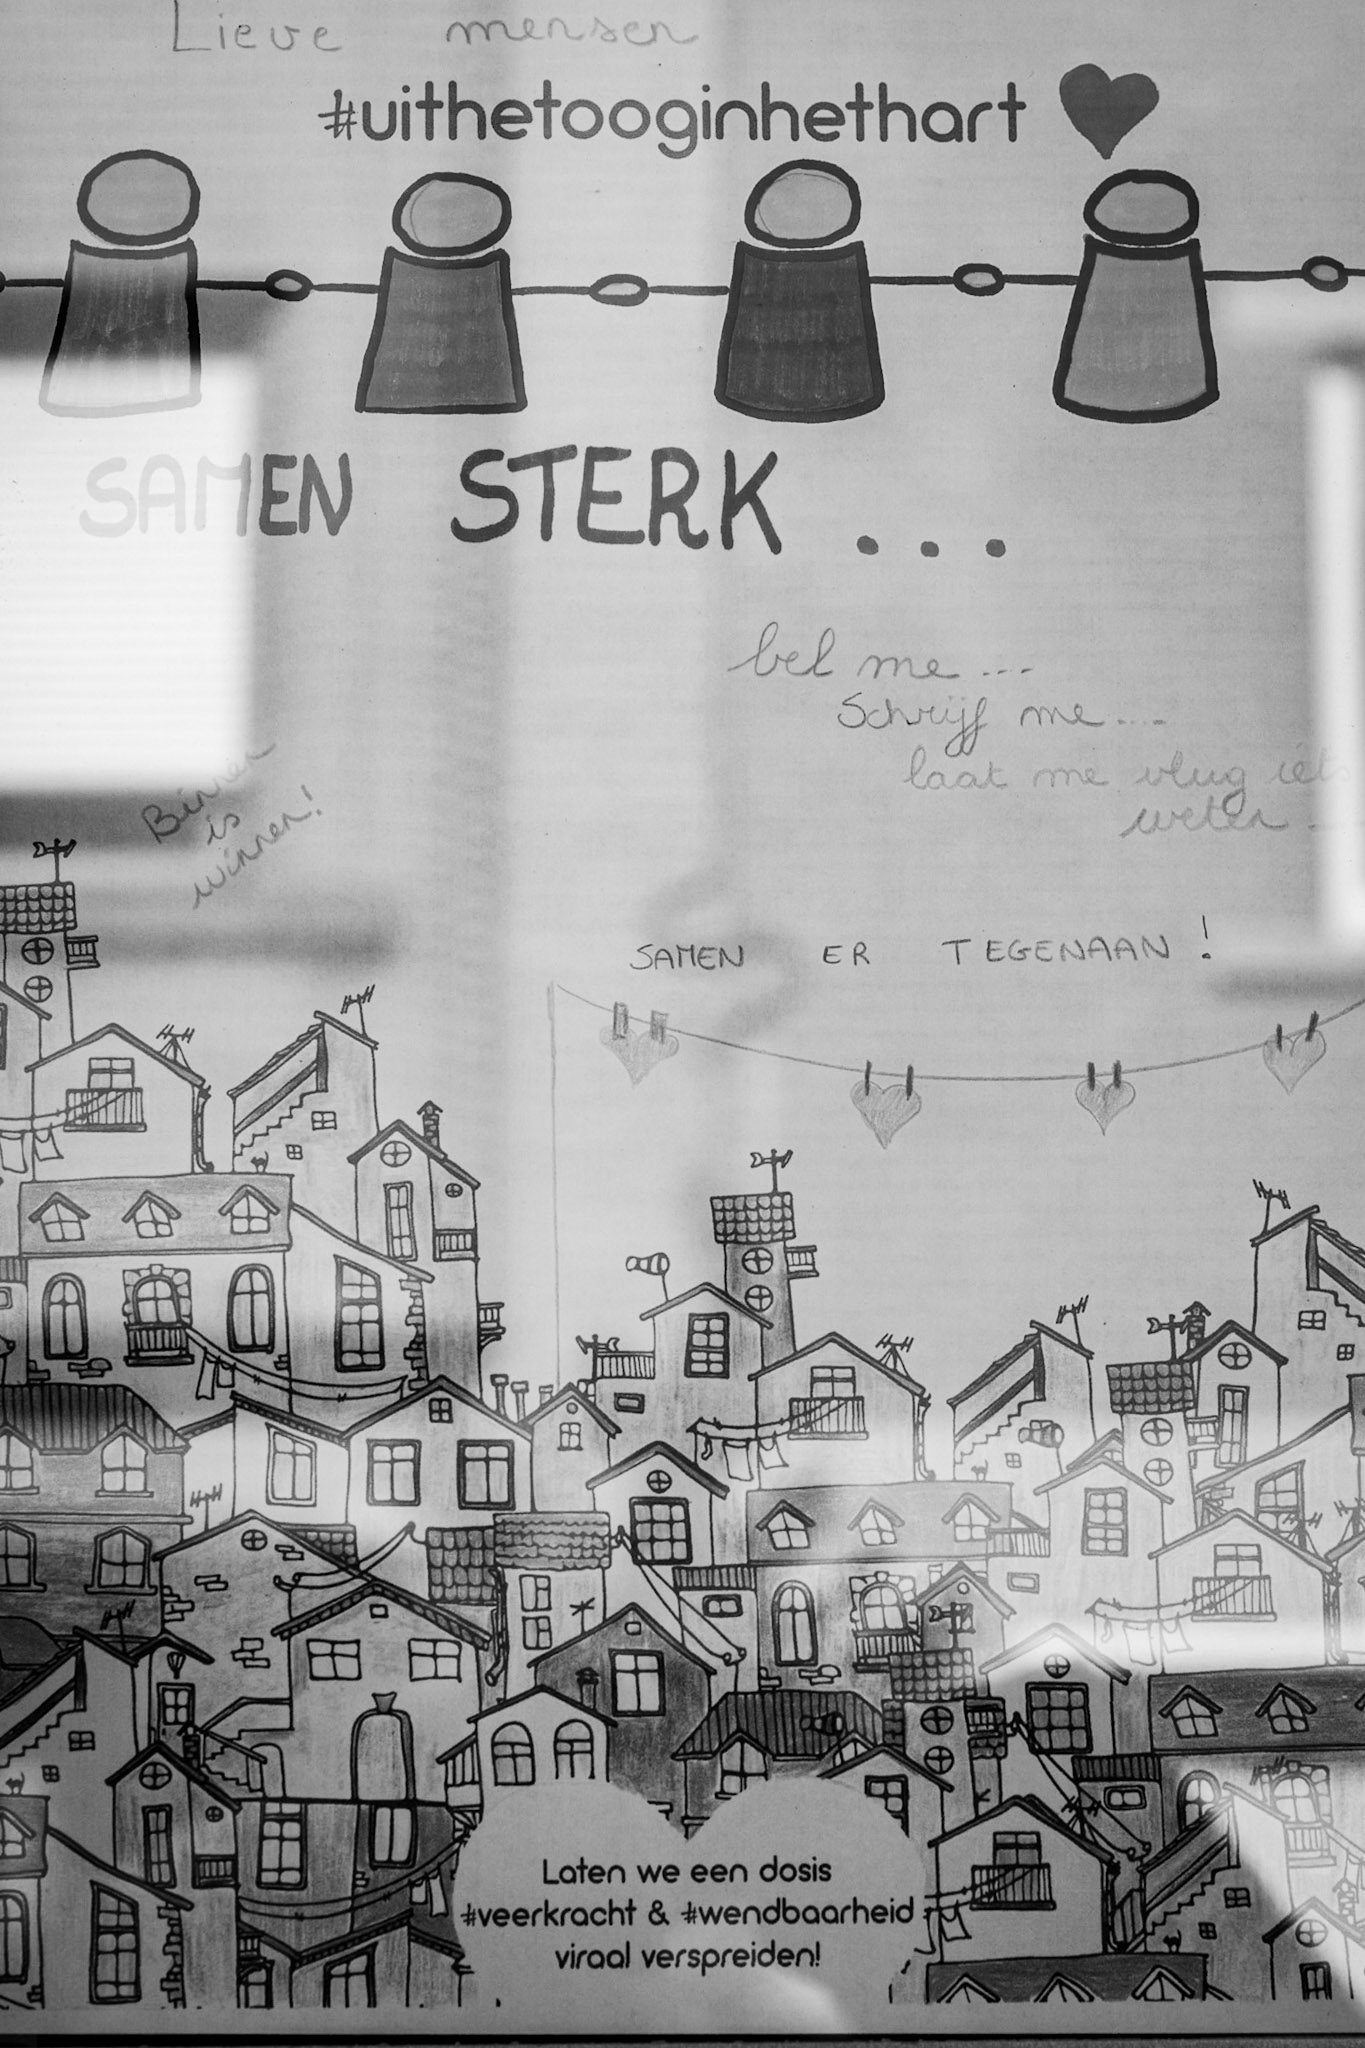 Lieve mensen
#uithetooginhethart
SAMEN STERK ...
bel me ...
Schrijf me ....
laat me vlug iets
weten
Binnen
is
winnen!
SAMEN ER TEGENAAN!
Laten we een dosis
#veerkracht & #wendbaarheid
viraal verspreiden!